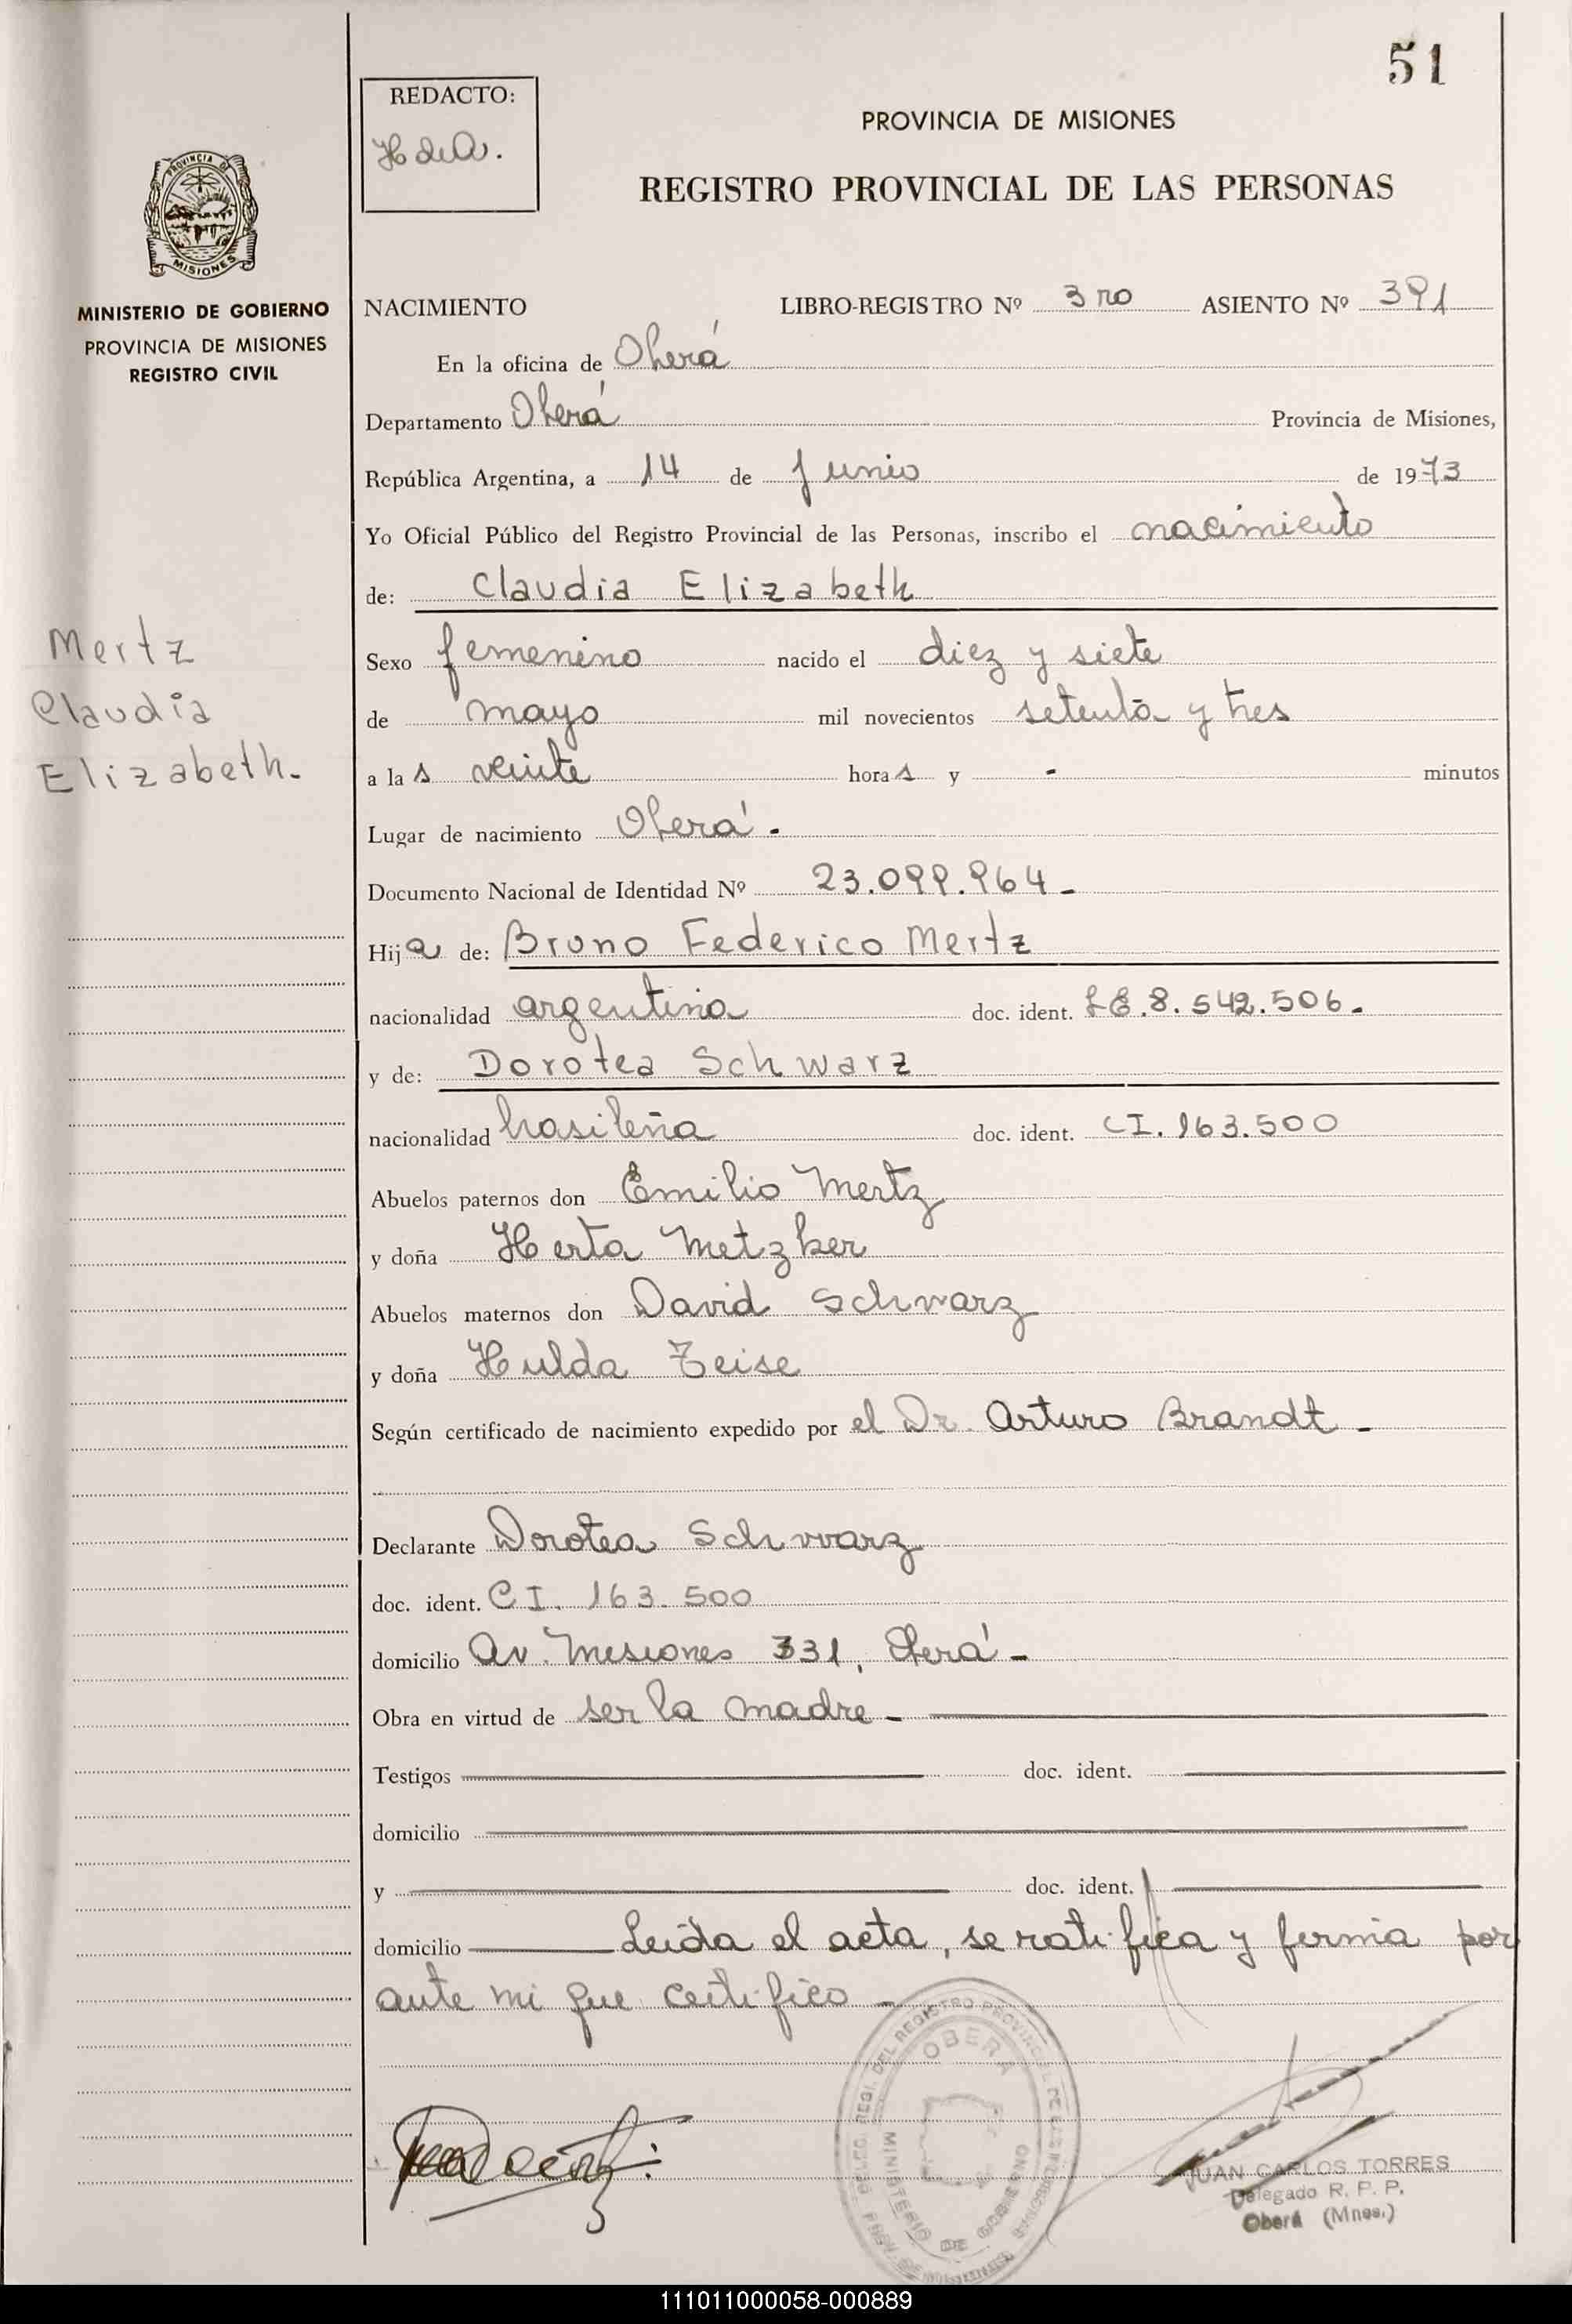 51
REDACTO:
H de A.
PROVINCIA DE MISIONES
REGISTRO PROVINCIAL DE LAS PERSONAS
PROVINCIA DE
MISIONES
MINISTERIO DE GOBIERNO
PROVINCIA DE MISIONES
REGISTRO CIVIL
NACIMIENTO LIBRO-REGISTRO Nº 3ro ASIENTO Nº 391
En la oficina de Oberá
Departamento Oberá Provincia de Misiones,
República Argentina, a 14 de Junio de 1973
Yo Oficial Público del Registro Provincial de las Personas, inscribo el nacimiento
de: Claudia Elizabeth
Mertz
Claudia
Elizabeth.
Sexo femenino nacido el diez y siete
de mayo mil novecientos setenta y tres
a las veinte horas y - minutos
Lugar de nacimiento Oberá.
Documento Nacional de Identidad Nº 23.099.964.
Hija de: Bruno Federico Mertz
nacionalidad argentina doc. ident. LE.8.542.506.
y de: Dorotea Schwarz
nacionalidad brasileña doc. ident. CI. 163.500
Abuelos paternos don Emilio Mertz
y doña Herta Metzker
Abuelos maternos don David Schwarz
y doña Hulda Zeise
Según certificado de nacimiento expedido por el Dr. Arturo Brandt.
Declarante Dorotea Schwarz
doc. ident. CI. 163.500
domicilio Av. Misiones 331, Oberá.
Obra en virtud de ser la madre
Testigos doc. ident.
domicilio
y doc. ident.
domicilio Leída el acta, se ratifica y firma por
ante mi que certifico
OBERA
MINISTERIO DE GOBIERNO
JUAN CARLOS TORRES
Delegado R. P. P.
Oberá (Mnes.)
111011000058-000889